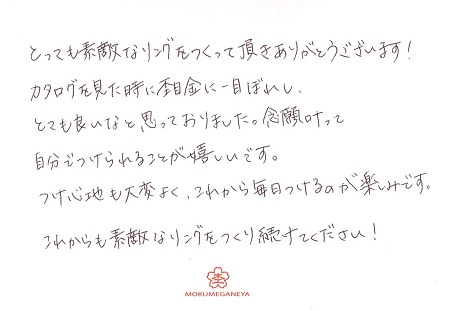 とっても素敵なリングをつくって頂きありがとうございます！
カタログを見た時に杢目金に一目ぼれし、
とても良いなと思っておりました。念願叶って
自分でつけられることが嬉しいです。
つけ心地も大変よく、これから毎日つけるのが楽しみです。
これからも素敵なリングをつくり続けてください！
杢
MOKUMEGANEYA